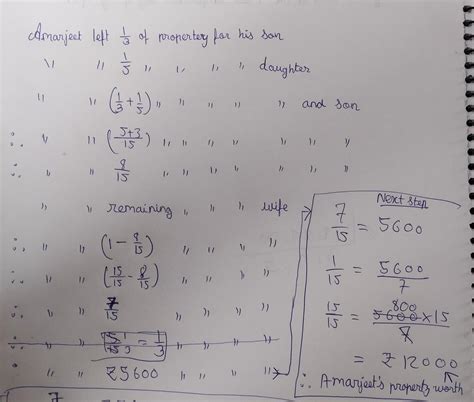 Amarjeet left 1/3 of propertey for his son
" " 1/5 " " " " daughter
" " (1/3 + 1/5) " " " " " and son
∴ " " (5+3/15) " " " " " " "
∴ " " 8/15 " " " " " " "
" " remaining " " " wife
∴ " " (1 - 8/15) " " " "
∴ " " (15/15 - 8/15) " " " "
∴ " " 7/15 " " " "
∴ " " = 1/3 " " " "
" " ₹5600 " " " "
Next step
7/15 = 5600
1/15 = 5600/7
15/15 = 800 5600 × 15/7
= ₹12000
∴ Amarjeet's property worth
7